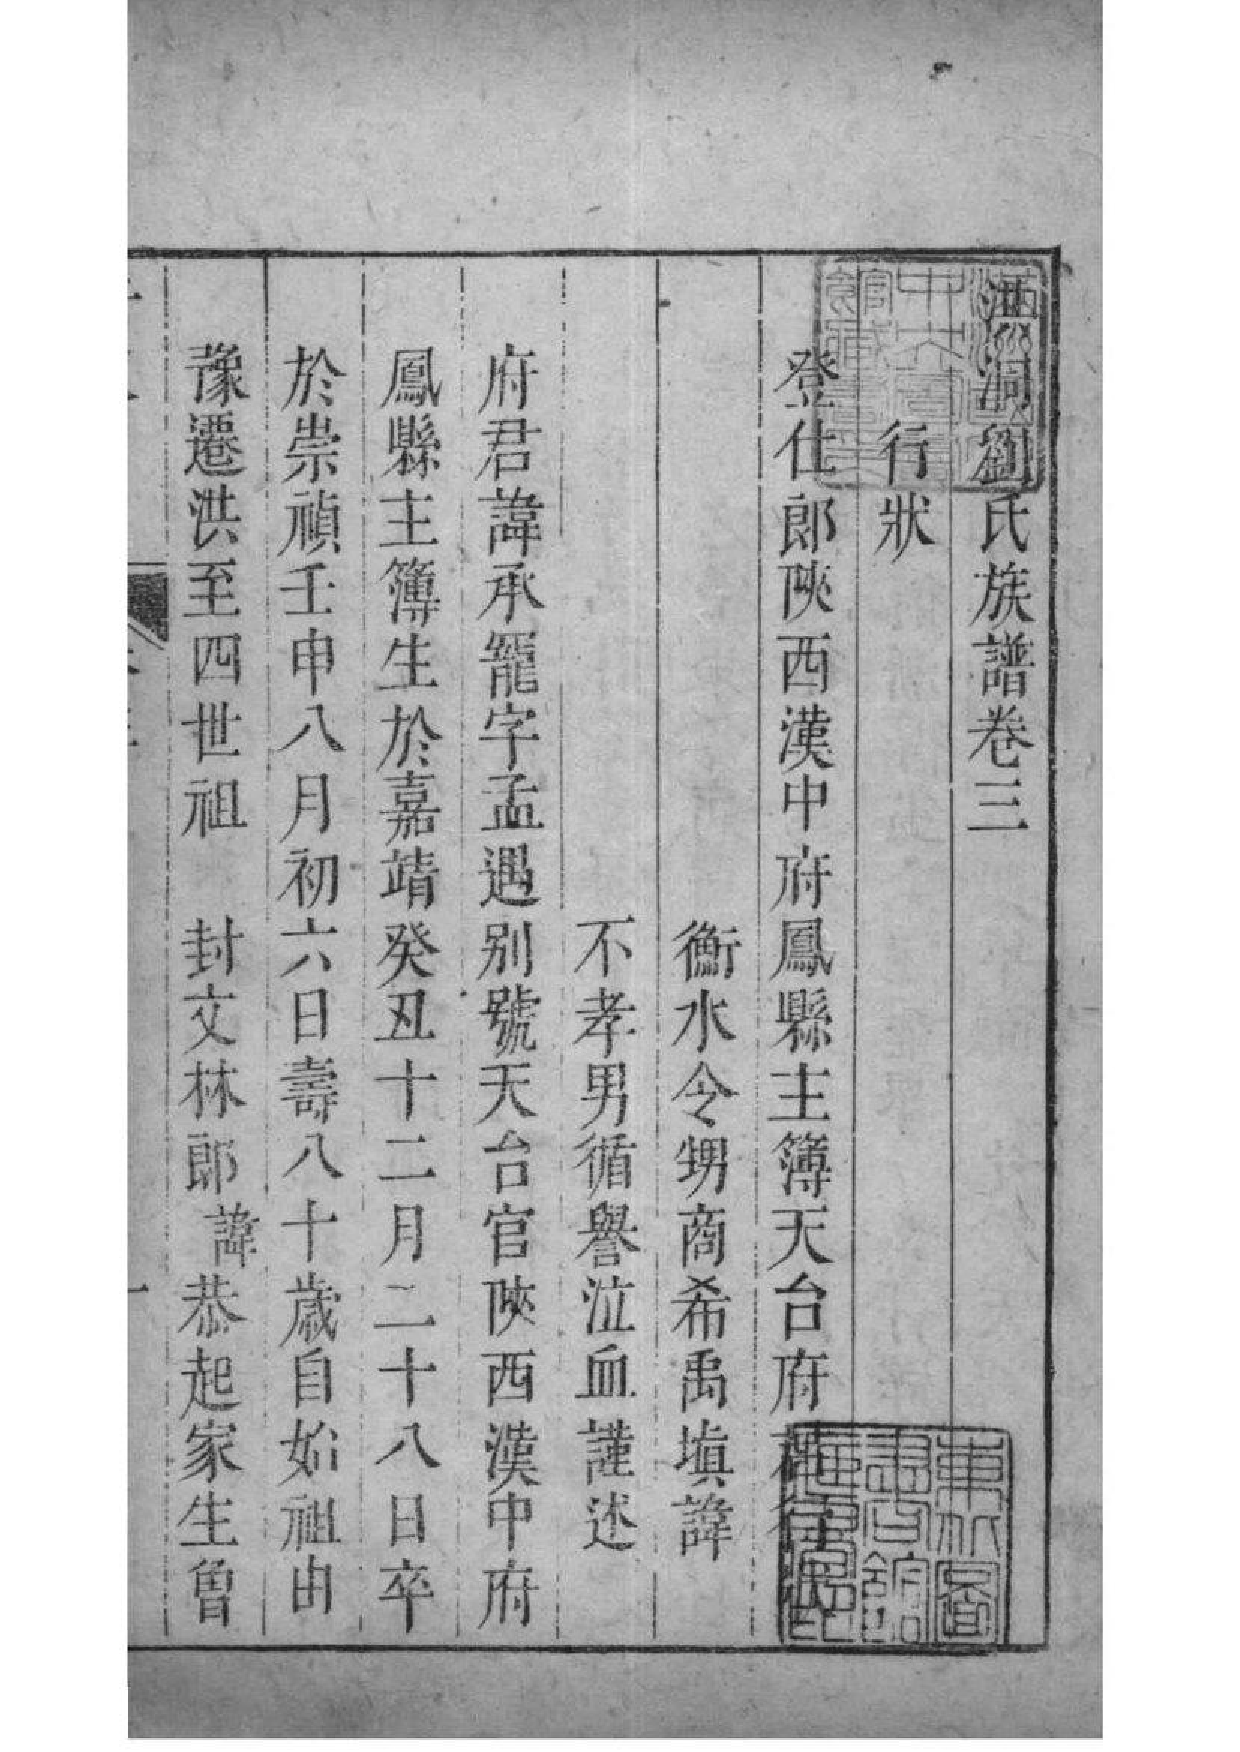 洪洞劉氏族譜卷三
行狀
登仕郎陝西漢中府鳳縣主簿天台府君行狀
衡水令甥商希禹塡諱
不孝男循譽泣血謹述
府君諱承寵字孟遇别號天台官陝西漢中府
鳳縣主簿生於嘉靖癸丑十二月二十八日卒
於崇禎壬申八月初六日壽八十歲自始祖由
豫遷洪至四世祖 封文林郎 諱恭起家生曾